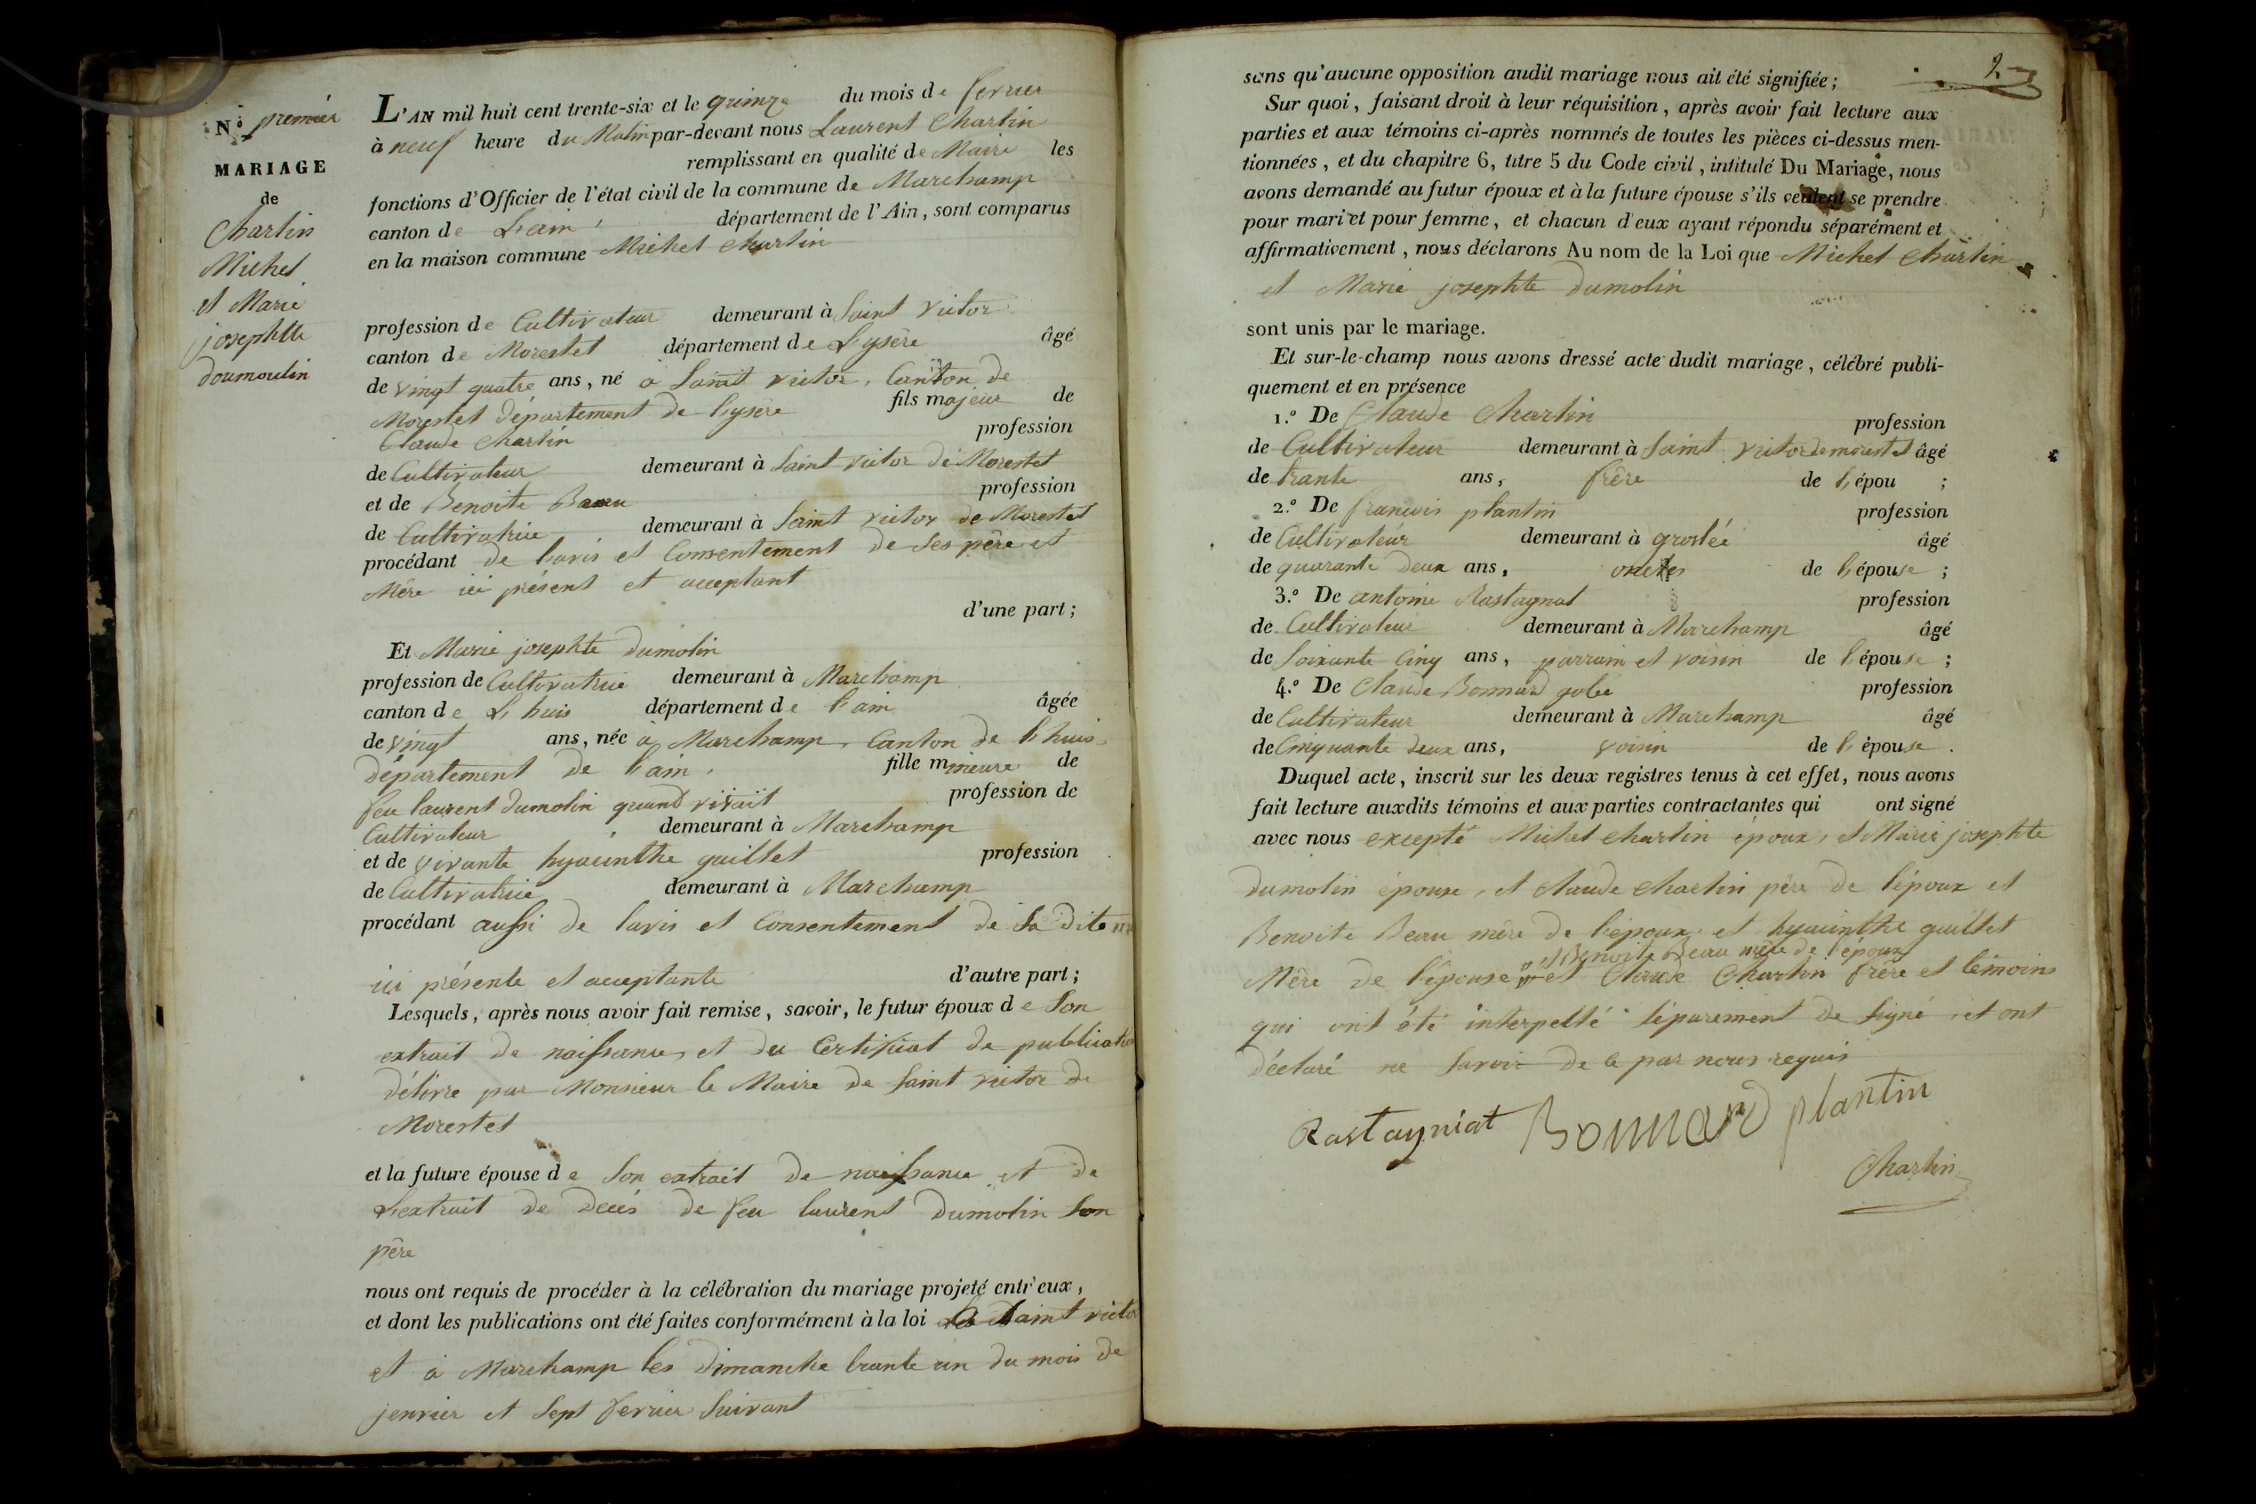 N.º premier
MARIAGE
de
Charlin
Michel
et Marie
josephtte
doumoulin
L'AN mil huit cent trente-six et le quinze du mois de fevrier
à neuf heure du Matin par-devant nous Laurent Charlin
remplissant en qualité de Maire les
fonctions d'Officier de l'état civil de la commune de Marchamp
canton de L'ain département de l'Ain, sont comparus
en la maison commune Michel Charlin
profession de Cultivateur demeurant à Saint victor
canton de Morestel département de L'ysère âgé
de vingt quatre ans, né à Saint victor, Canton de
Morestel département de l'ysère fils majeur de
Claude Charlin profession
de Cultivateur demeurant à Saint victor de Morestel
et de Benoite Beau profession
de Cultivatrice demeurant à Saint victor de Morestel
procédant de lavis et Consentement de Ses père et
Mère ici présent et acceptant
d'une part;
Et Marie josephte dumolin
profession de Cultivatrice demeurant à Marchamp
canton de L'huis département de l'ain âgée
de vingt ans, née à Marchamp, Canton de l'huis
département de l'ain, fille mineure de
feu laurent dumolin quand vivait profession de
Cultivateur demeurant à Marchamp
et de vivante hyacinthe guillet profession
de Cultivatrice demeurant à Marchamp
procédant aussi de lavis et Consentement de Sa dite
ici présente et acceptante d'autre part;
Lesquels, après nous avoir fait remise, savoir, le futur époux de Son
extrait de naissance, et du Certificat de publication
délivre par Monsieur le Maire de Saint victor de
Morestel
et la future épouse de Son extrait de naissance et de
L'extrait de décés de feu laurent dumolin Son
père
nous ont requis de procéder à la célébration du mariage projeté entr'eux,
et dont les publications ont été faites conformément à la loi à Saint victor
et à Marchamp les dimanche trante un du mois de
jenvier et Sept fevrier Suivant
2
sans qu'aucune opposition audit mariage nous ait été signifiée;
Sur quoi, faisant droit à leur réquisition, après avoir fait lecture aux
parties et aux témoins ci-après nommés de toutes les pièces ci-dessus men-
tionnées, et du chapitre 6, titre 5 du Code civil, intitulé Du Mariage, nous
avons demandé au futur époux et à la future épouse s'ils veulent se prendre
pour mari et pour femme, et chacun d'eux ayant répondu séparément et
affirmativement, nous déclarons Au nom de la Loi que Michel Charlin
et Marie josephte dumolin
sont unis par le mariage.
Et sur-le-champ nous avons dressé acte dudit mariage, célébré publi-
quement et en présence
1.º De Claude Charlin profession
de Cultivateur demeurant à Saint victor de morestel âgé
de trante ans, frère de l'épou ;
2.º De francois plantin profession
de Cultivateur demeurant à groslée âgé
de quarante deux ans, oncles de l'épouse ;
3.º De antoine Rastagnat profession
de Cultivateur demeurant à Marchamp âgé
de Soixante Cinq ans, parrain et voisin de l'épouse ;
4.º De Claude Bonnard golée profession
de Cultivateur demeurant à Marchamp âgé
de Cinquante deux ans, voisin de l'épouse .
Duquel acte, inscrit sur les deux registres tenus à cet effet, nous avons
fait lecture auxdits témoins et aux parties contractantes qui ont signé
avec nous excepté Michel charlin époux, et Marie josephte
dumolin épouse, et claude charlin père de l'époux et
Benoite Beau mère de l'époux et hyacinthe guillet
et Benoite Beau mère de l'époux
Mère de l'épouse et Claude Charlin frère et témoins
qui ont été interpellé séparement de Signé, et ont
déclaré ne Savoir de ce par nous requis
Rastagniat Bonnard plantin
Charlin